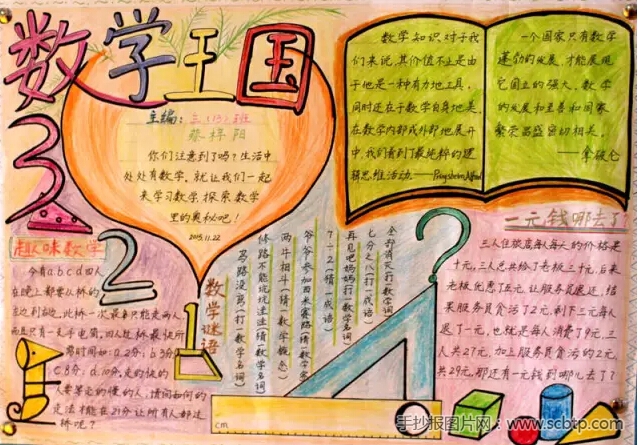 数学王国
主编：三（13）班
蔡梓阳
你们注意到了吗？生活中
处处有数学，就让我们一起
来学习数学，探索数学
里的奥秘吧！
2015.11.22
数学知识对于我
们来说，其价值不止是由
于他是一种有力地工具，
同时还在于数学自身地美，
在数学内部或外部地展开
中，我们看到了最纯粹的逻
辑思维活动。——Pringsheim, Alfred
一个国家只有数学
蓬勃的发展，才能展现
它国立的强大，数学
的发展和至善和国家
繁荣昌盛密切相关。
——拿破仑
3
2
1
趣味数学
今有a b c d四人
在晚上都要从桥的
左边到右边，此桥一次最多只能走两人
而且只有一支手电筒，四人过桥最快所
需时间如：a.2分；b.3分
C.8分；d.10分，走的快的
人要等走的慢的人，请问如何的
走法才能在21分让所有人都过
桥呢？
数学谜语
马路没弯（打一数学名词）
修路不能坑坑洼洼（猜一数学名词）
两牛相斗（猜一数学概念）
爷爷参加百米赛跑（猜一数学家）
7÷2（猜一成语）
再见吧妈妈（打一数学名词）
七分之八（打一成语）
全部消灭（打一数学名词）
?
一元钱哪去了？
三人住旅店每人每天的价格是
十元，三人总共给了老板三十元，后来
老板优惠了5元，让服务员退还，结
果服务员贪污了2元，剩下三元每人
退了一元，也就是每人消费了9元，三
人共27元，加上服务员贪污的2元，
共29元，那还有一元钱到哪儿去了？
cm
手抄报图片网：www.scbtp.com